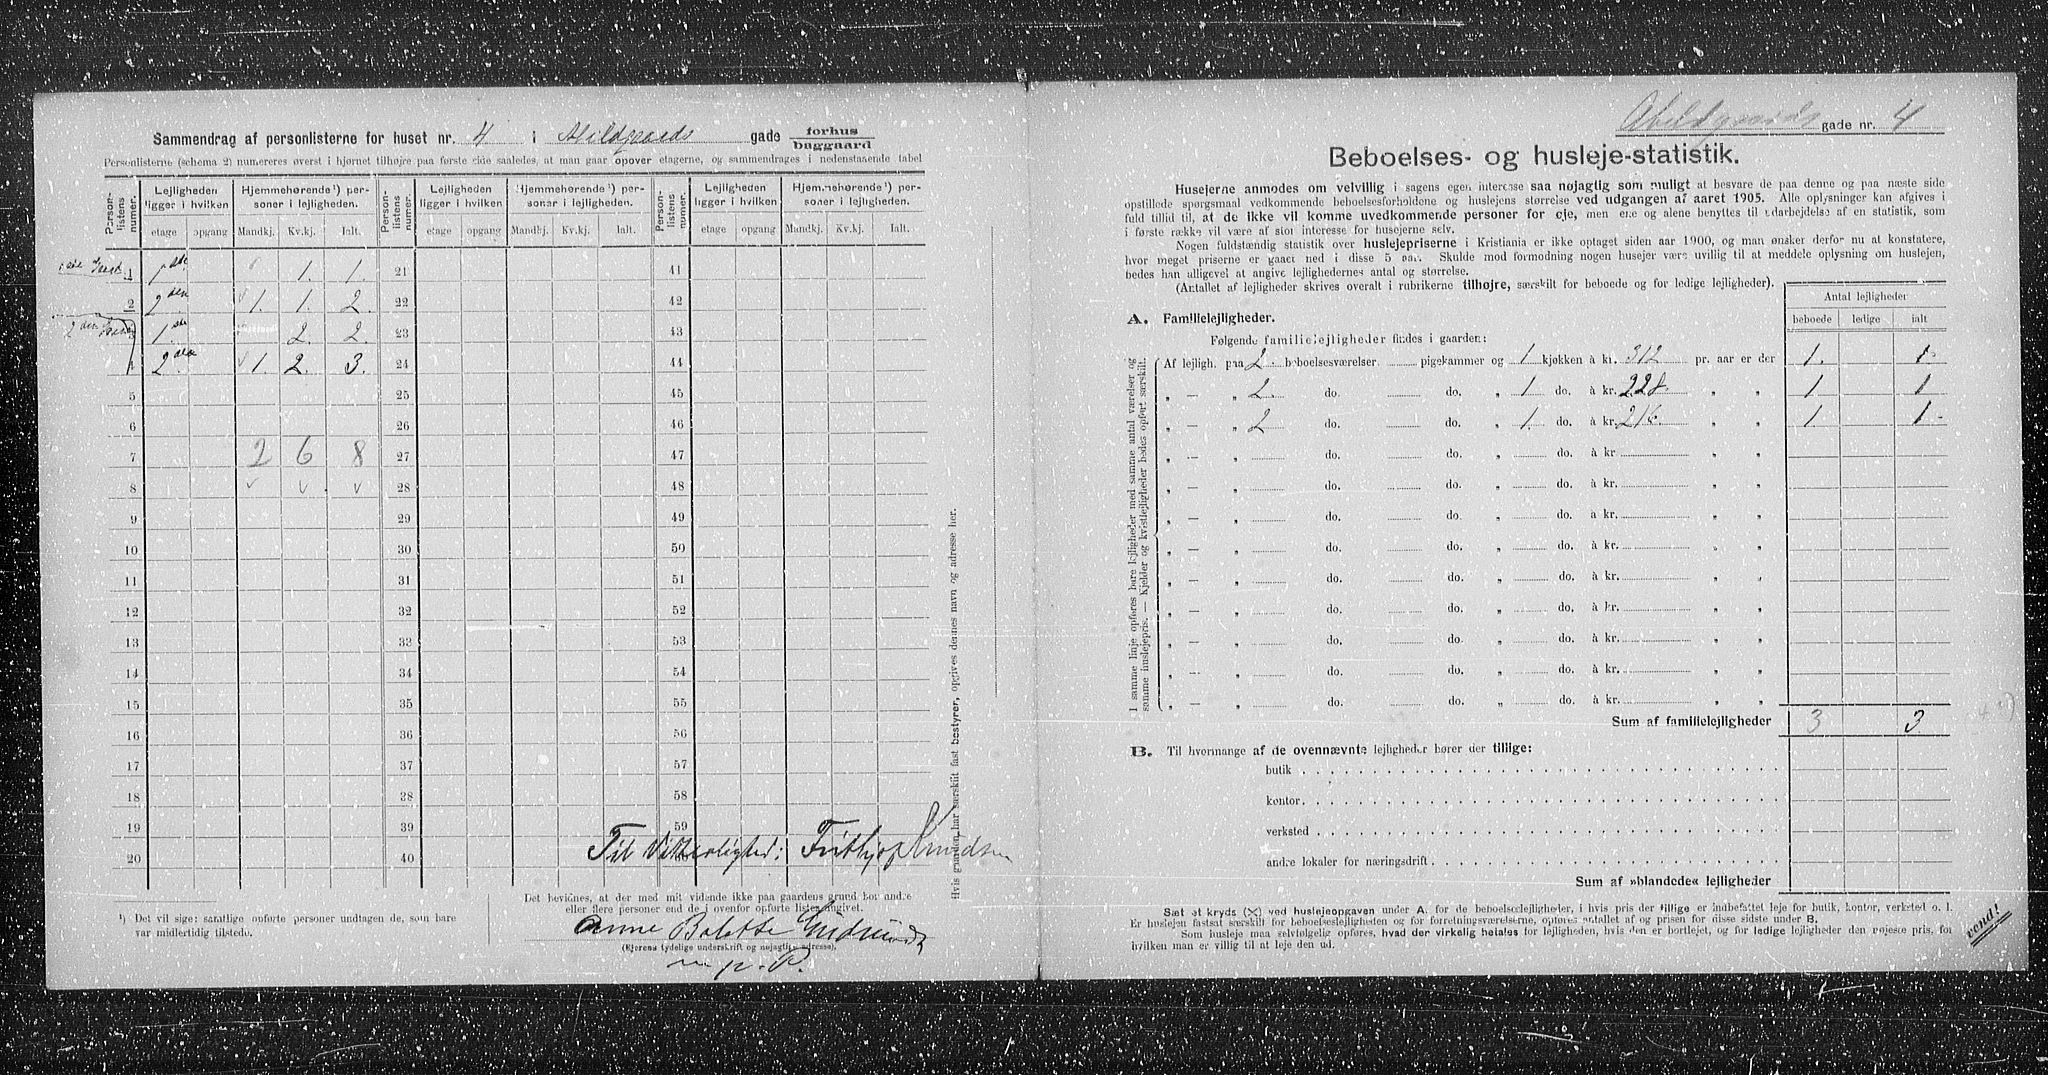 Sammendrag af personlisterne for huset nr. 4 i Abildgaards gade forhus baggaard
Personlisterne (schema 2) numereres øverst i hjørnet tilhøjre paa første side saaledes, at man gaar opover etagerne, og sammendrages i nedenstaaende tabel
Personlistens numer. Lejligheden ligger i hvilken Hjemmehørende ¹) personer i lejligheden. Personlistens numer. Lejligheden ligger i hvilken Hjemmehørende ¹) personer i lejligheden. Personlistens numer. Lejligheden ligger i hvilken Hjemmehørende ¹) personer i lejligheden.
etage opgang Mandkj. Kv.kj. Ialt. etage opgang Mandkj. Kv.kj. Ialt. etage opgang Mandkj. Kv.kj. Ialt.
1 1ste 1. 1. 21 41
2 2den 1. 1. 2. 22 42
3 1ste 2. 2. 23 43
4 2den 1. 2. 3. 24 44
5 25 45
6 26 46
7 2 6 8 27 47
8 28 48
9 29 49
10 30 50
11 31 51
12 32 52
13 33 53
14 34 54
15 35 55
16 36 56
17 37 57
18 38 58
19 39 59
20 40
Til Vitterlighed: Frithjof Knudsen
¹) Det vil sige: samtlige opførte personer undtagen de, som bare var midlertidig tilstede.
Det bevidnes, at der med mit vidende ikke paa gaardens grund bor andre
eller flere personer end de i ovenfor opførte lister angivet.
Anne Bolette
(Ejerens tydelige underskrift og nøjagtige adresse).
m. p. P.
Hvis gaarden har særskilt fast bestyrer, opgives dennes navn og adresse her.
Abildgaards gade nr. 4
Beboelses- og husleje-statistik.
Husejerne anmodes om velvillig i sagens egen interesse saa nøjagtig som muligt at besvare de paa denne og paa næste side
opstillede spørgsmaal vedkommende beboelsesforholdene og huslejens størrelse ved udgangen af aaret 1905. Alle oplysninger kan afgives i
fuld tillid til, at de ikke vil komme uvedkommende personer for øje, men ene og alene benyttes til udarbejdelse af en statistik, som
i første række vil være af stor interesse for husejerne selv.
Nogen fuldstændig statistik over huslejepriserne i Kristiania er ikke optaget siden aar 1900, og man ønsker derfor nu at konstatere,
hvor meget priserne er gaaet ned i disse 5 aar. Skulde mod formodning nogen husejer være uvillig til at meddele oplysning om huslejen,
bedes han alligevel at angive lejlighedernes antal og størrelse.
(Antallet af lejligheder skrives overalt i rubrikerne tilhøjre, særskilt for beboede og for ledige lejligheder).
Antal lejligheder
beboede ledige ialt
A. Familielejligheder.
Følgende familielejligheder findes i gaarden:
I samme linje opføres bare lejligheder med samme antal værelser og samme huslejepris. — Kjelder og kvistlejligheder bedes opført særskilt.
Af lejligh. paa 2 beboelsesværelser pigekammer og 1 kjøkken à kr. 312 pr. aar er der 1. 1.
„ — „ 2. do. do. „ 1 do. à kr. 228. „ „ 1 1
„ — „ 2 do. do. „ 1. do. à kr. 216. „ „ 1 1.
„ — „ do. do. „ do. à kr. „ „
„ — „ do. do. „ do. à kr. „ „
„ — „ do. do. „ do. à kr. „ „
„ — „ do. do. „ do. à kr. „ „
„ — „ do. do. „ do. à kr. „ „
„ — „ do. do. „ do. à kr. „ „
„ — „ do. do. „ do. à kr. „ „
„ — „ do. do. „ do. à kr. „ „
„ — „ do. do. „ do. à kr. „ „
Sum af familielejligheder 3 3.
B. Til hvormange af de ovennævnte lejligheder hører der tillige:
butik
kontor
verksted
andre lokaler for næringsdrift
Sum af »blandede« lejligheder
Sæt et kryds (×) ved huslejeopgaven under A. for de beboelseslejligheder, i hvis pris der tillige er indbefattet leje for butik, kontor, verksted o. l.
Er huslejen fastsat særskilt for beboelseslejligheden og for forretningsværelserne, opføres antallet af og prisen for disse sidste under B.
Som husleje maa selvfølgelig opføres, hvad der virkelig betales for lejligheden, hvis den er bortlejet, og for ledige lejligheder den højeste pris, for
hvilken man er villig til at leje den ud.
vend!